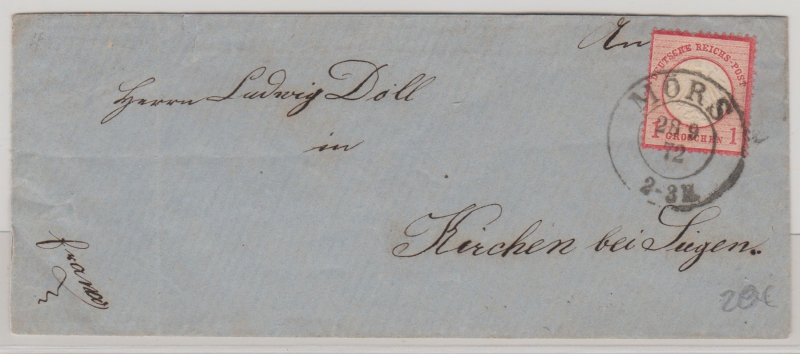 An
DEUTSCHE REICHS-POST
1 GROSCHEN 1
MÖRS
28 9
72
2-3N.
Herrn Ludwig Döll
in
Kirchen bei Siegen.
franco